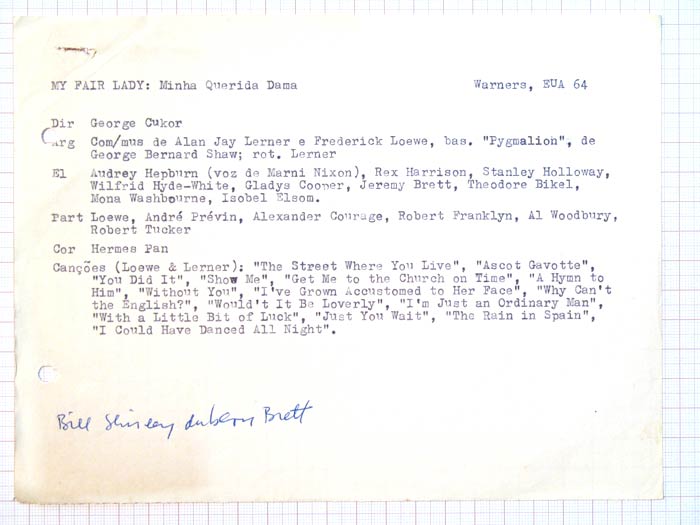 MY FAIR LADY: Minha Querida Dama Warners, EUA 64
Dir George Cukor
arg Com/mus de Alan Jay Lerner e Frederick Loewe, bas. "Pygmalion", de
George Bernard Shaw; rot. Lerner
El Audrey Hepburn (voz de Marni Nixon), Rex Harrison, Stanley Holloway,
Wilfrid Hyde-White, Gladys Cooper, Jeremy Brett, Theodore Bikel,
Mona Washbourne, Isobel Elsom.
Part Loewe, André Prévin, Alexander Courage, Robert Franklyn, Al Woodbury,
Robert Tucker
Cor Hermes Pan
Canções (Loewe & Lerner): "The Street Where You Live", "Ascot Gavotte",
"You Did It", "Show Me", "Get Me to the Church on Time", "A Hymn to
Him", "Without You", "I've Grown Accustomed to Her Face", "Why Can't
the English?", "Would't It Be Loverly", "I'm Just an Ordinary Man",
"With a Little Bit of Luck", "Just You Wait", "The Rain in Spain",
"I Could Have Danced All Night".
Bill Shirley Brett